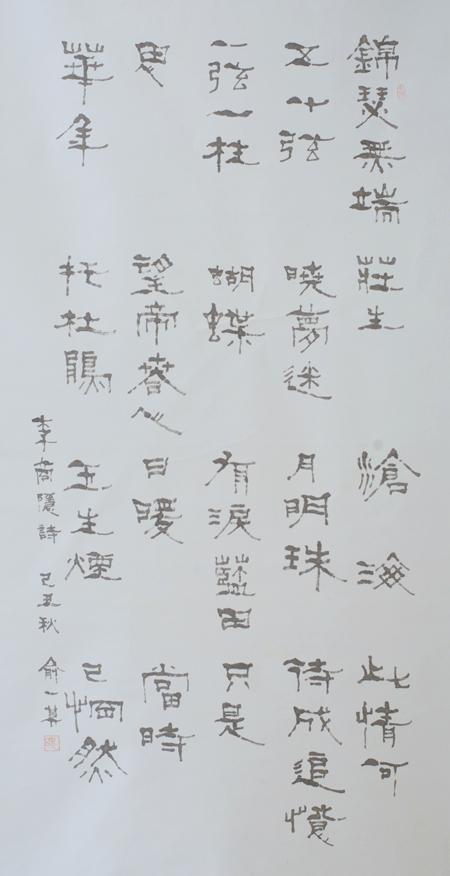 錦瑟無端
五十弦
一弦一柱
思
華年
莊生
曉夢迷
蝴蝶
望帝春心
托杜鵑
滄海
月明珠
有淚藍田
日暖
玉生煙
此情可
待成追憶
只是
當時
已惘然
李商隱詩 己丑秋 俞一